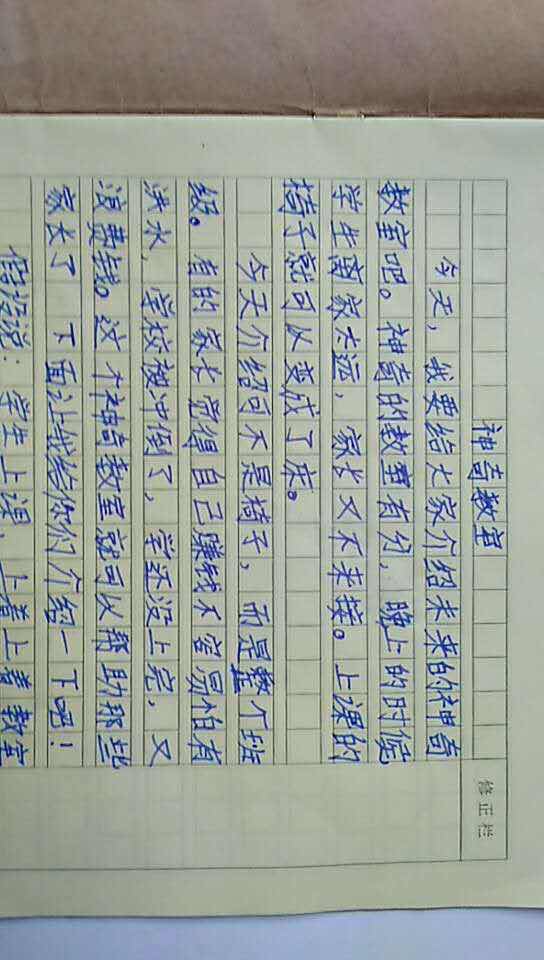 神奇教室
修正栏
今天，我要给大家介绍未来的神奇
教室吧。神奇的教室有们，晚上的时候
学生离家太远，家长又不来接。上课的
椅子就可以变成了床。
今天介绍可不是椅子，而是整个班
级。有的家长觉得自己赚钱不容易怕有
洪水，学校被冲倒了，学还没上完，又
浪费钱。这个神奇教室就可以帮助那些
家长了 下面让我给你们介绍一下吧！
假设说：学生上课，上着上着教室